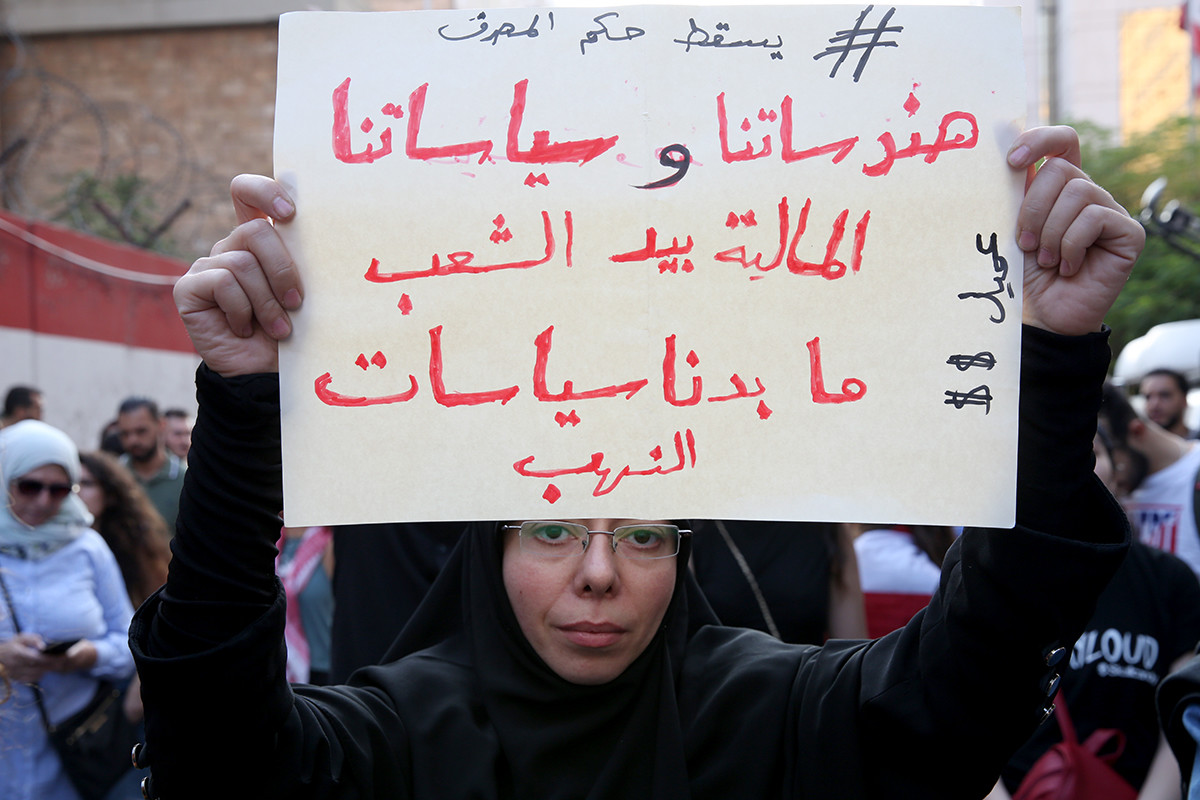 # يسقط حكم المصرف
هندساتنا و سياساتنا
المالية بيد الشعب
ما بدنا سياسات
النهب
عميل $$